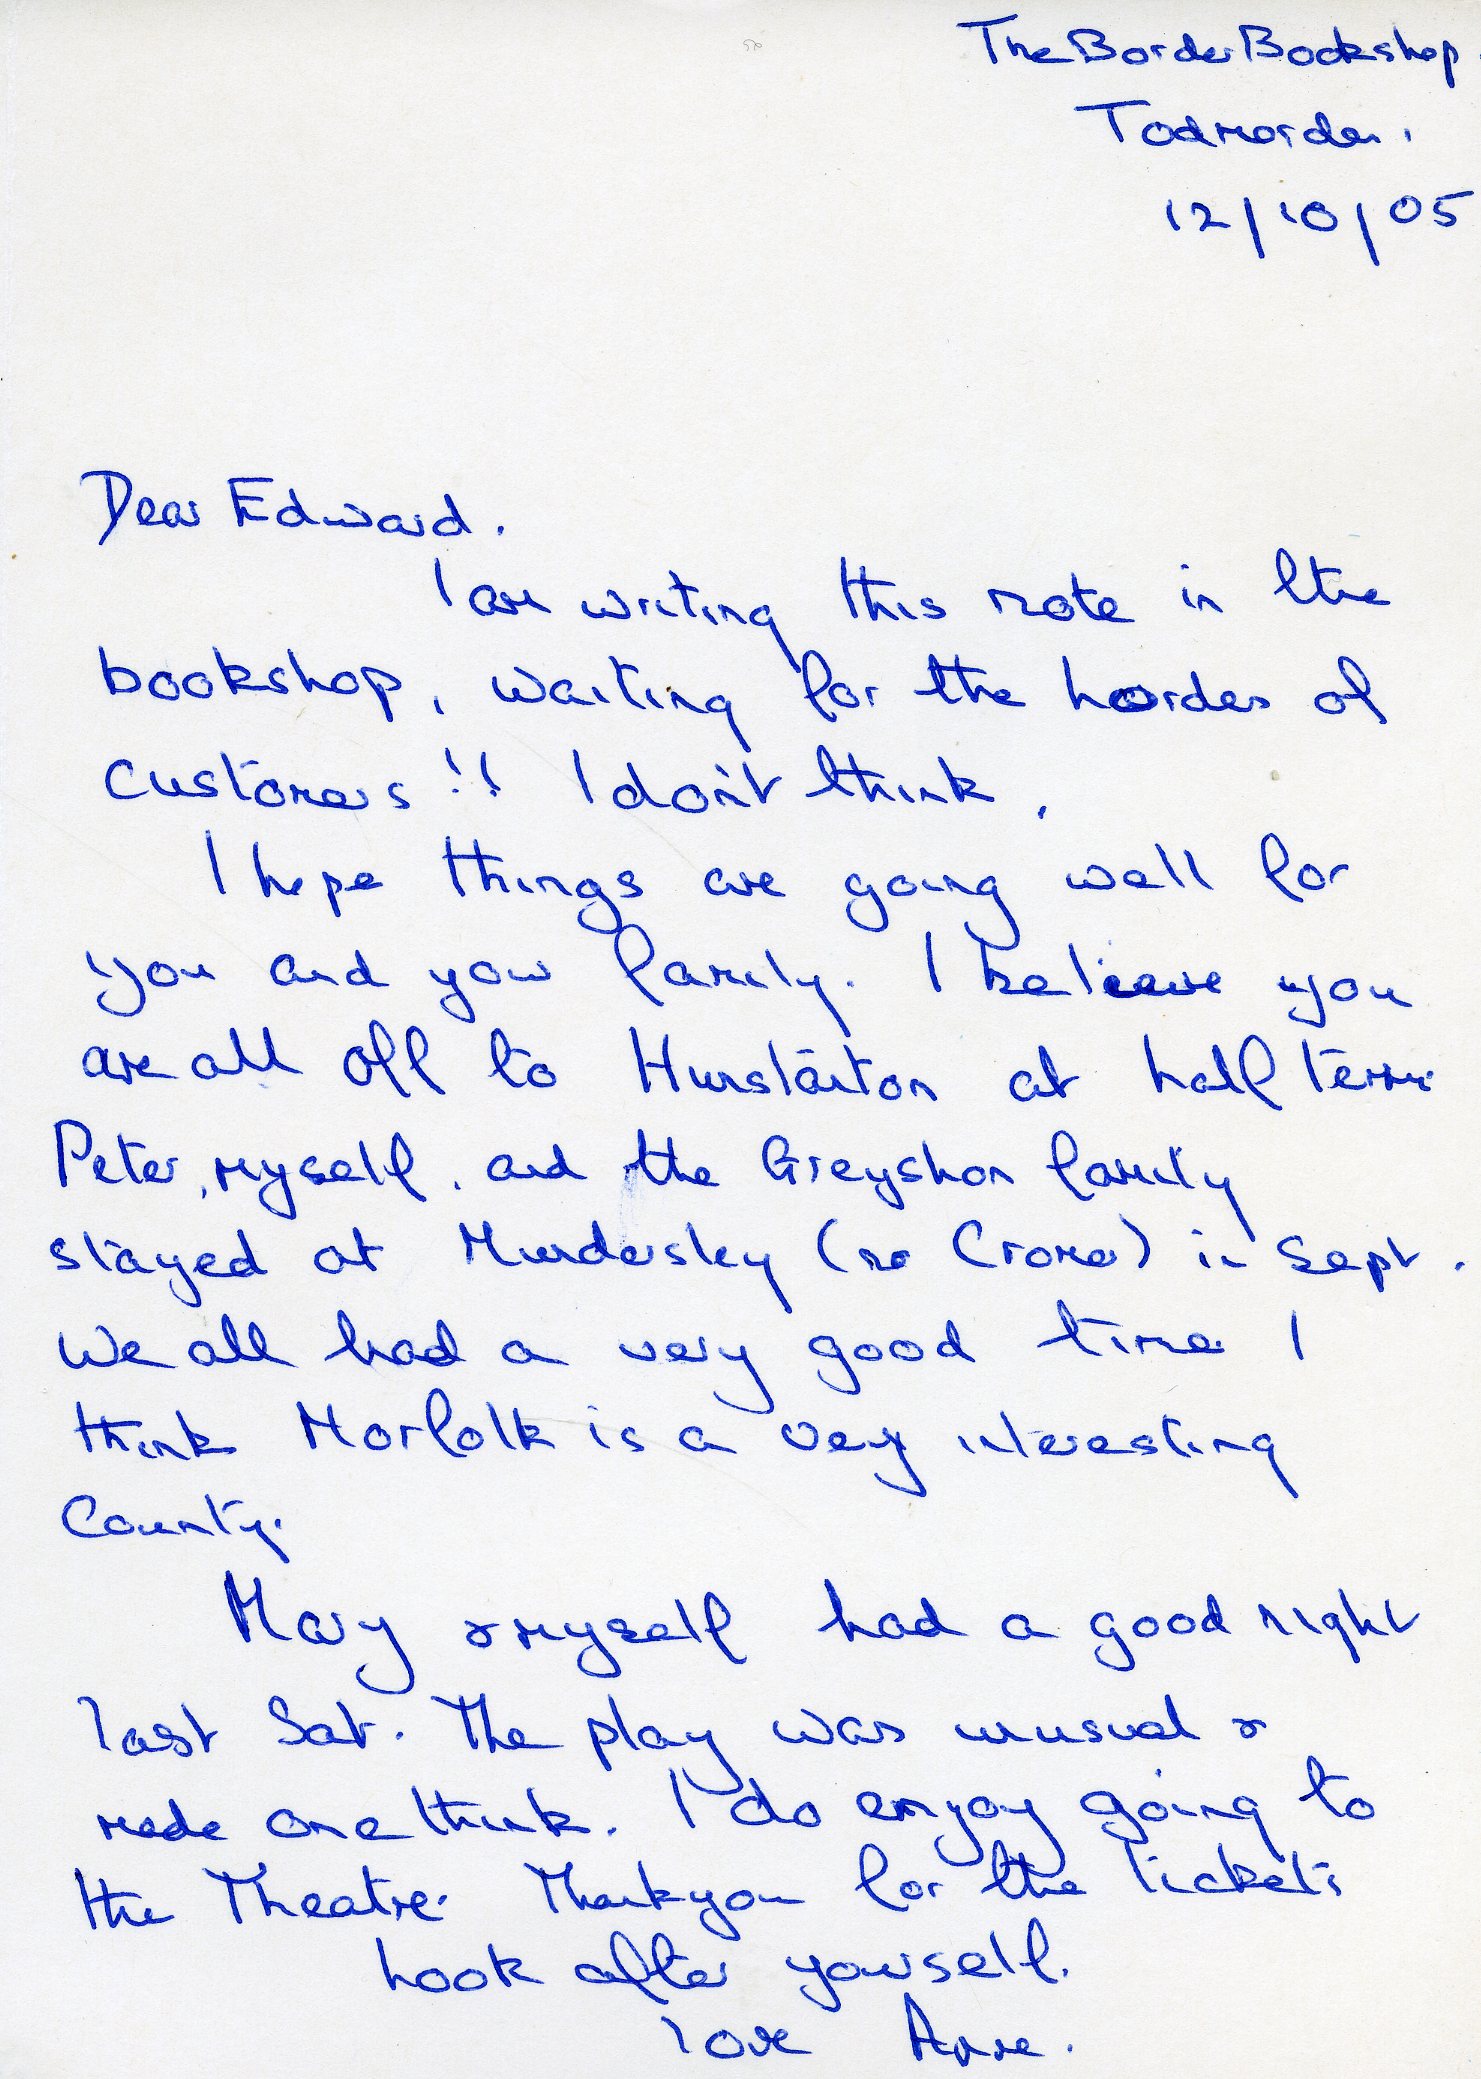 The Border Bookshop.
Todmorden.
12/10/05
Dear Edward.
I am writing this note in the
bookshop, waiting for the hordes of
customers!! I don't think.
I hope things are going well for
you and your family. I believe you
are all off to Hunstanton at half term.
Peter, myself, and the Greyshon family
stayed at Mundersley (nr Cromer) in Sept.
We all had a very good time. I
think Norfolk is a very interesting
County.
Mary & myself had a good night
last Sat. The play was unusual &
made one think. I do enjoy going to
the Theatre. Thankyou for the tickets
Look after yourself.
love Anne.